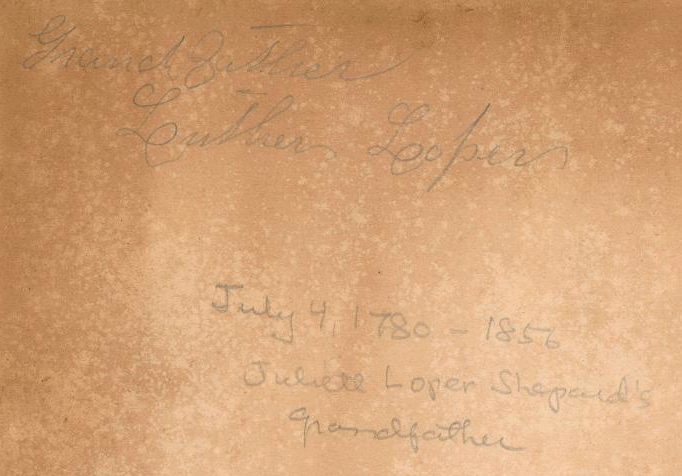 Grandfather
Luther Loper
July 4, 1780 - 1856
Juliett Loper Shepard's
grandfather